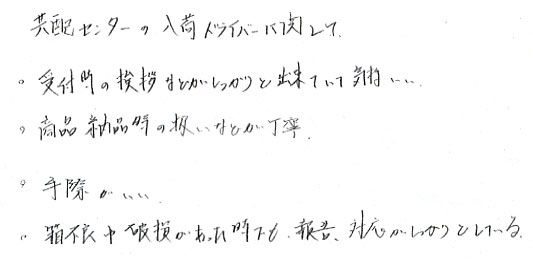 共配センターの入荷ドライバーに関して
。受付時の挨拶などがしっかりと出来ていて気持いい。
。商品納品時の扱いなどが丁寧。
。手際がいい。
。箱不良や破損があった時でも、報告、対応がしっかりとしている。